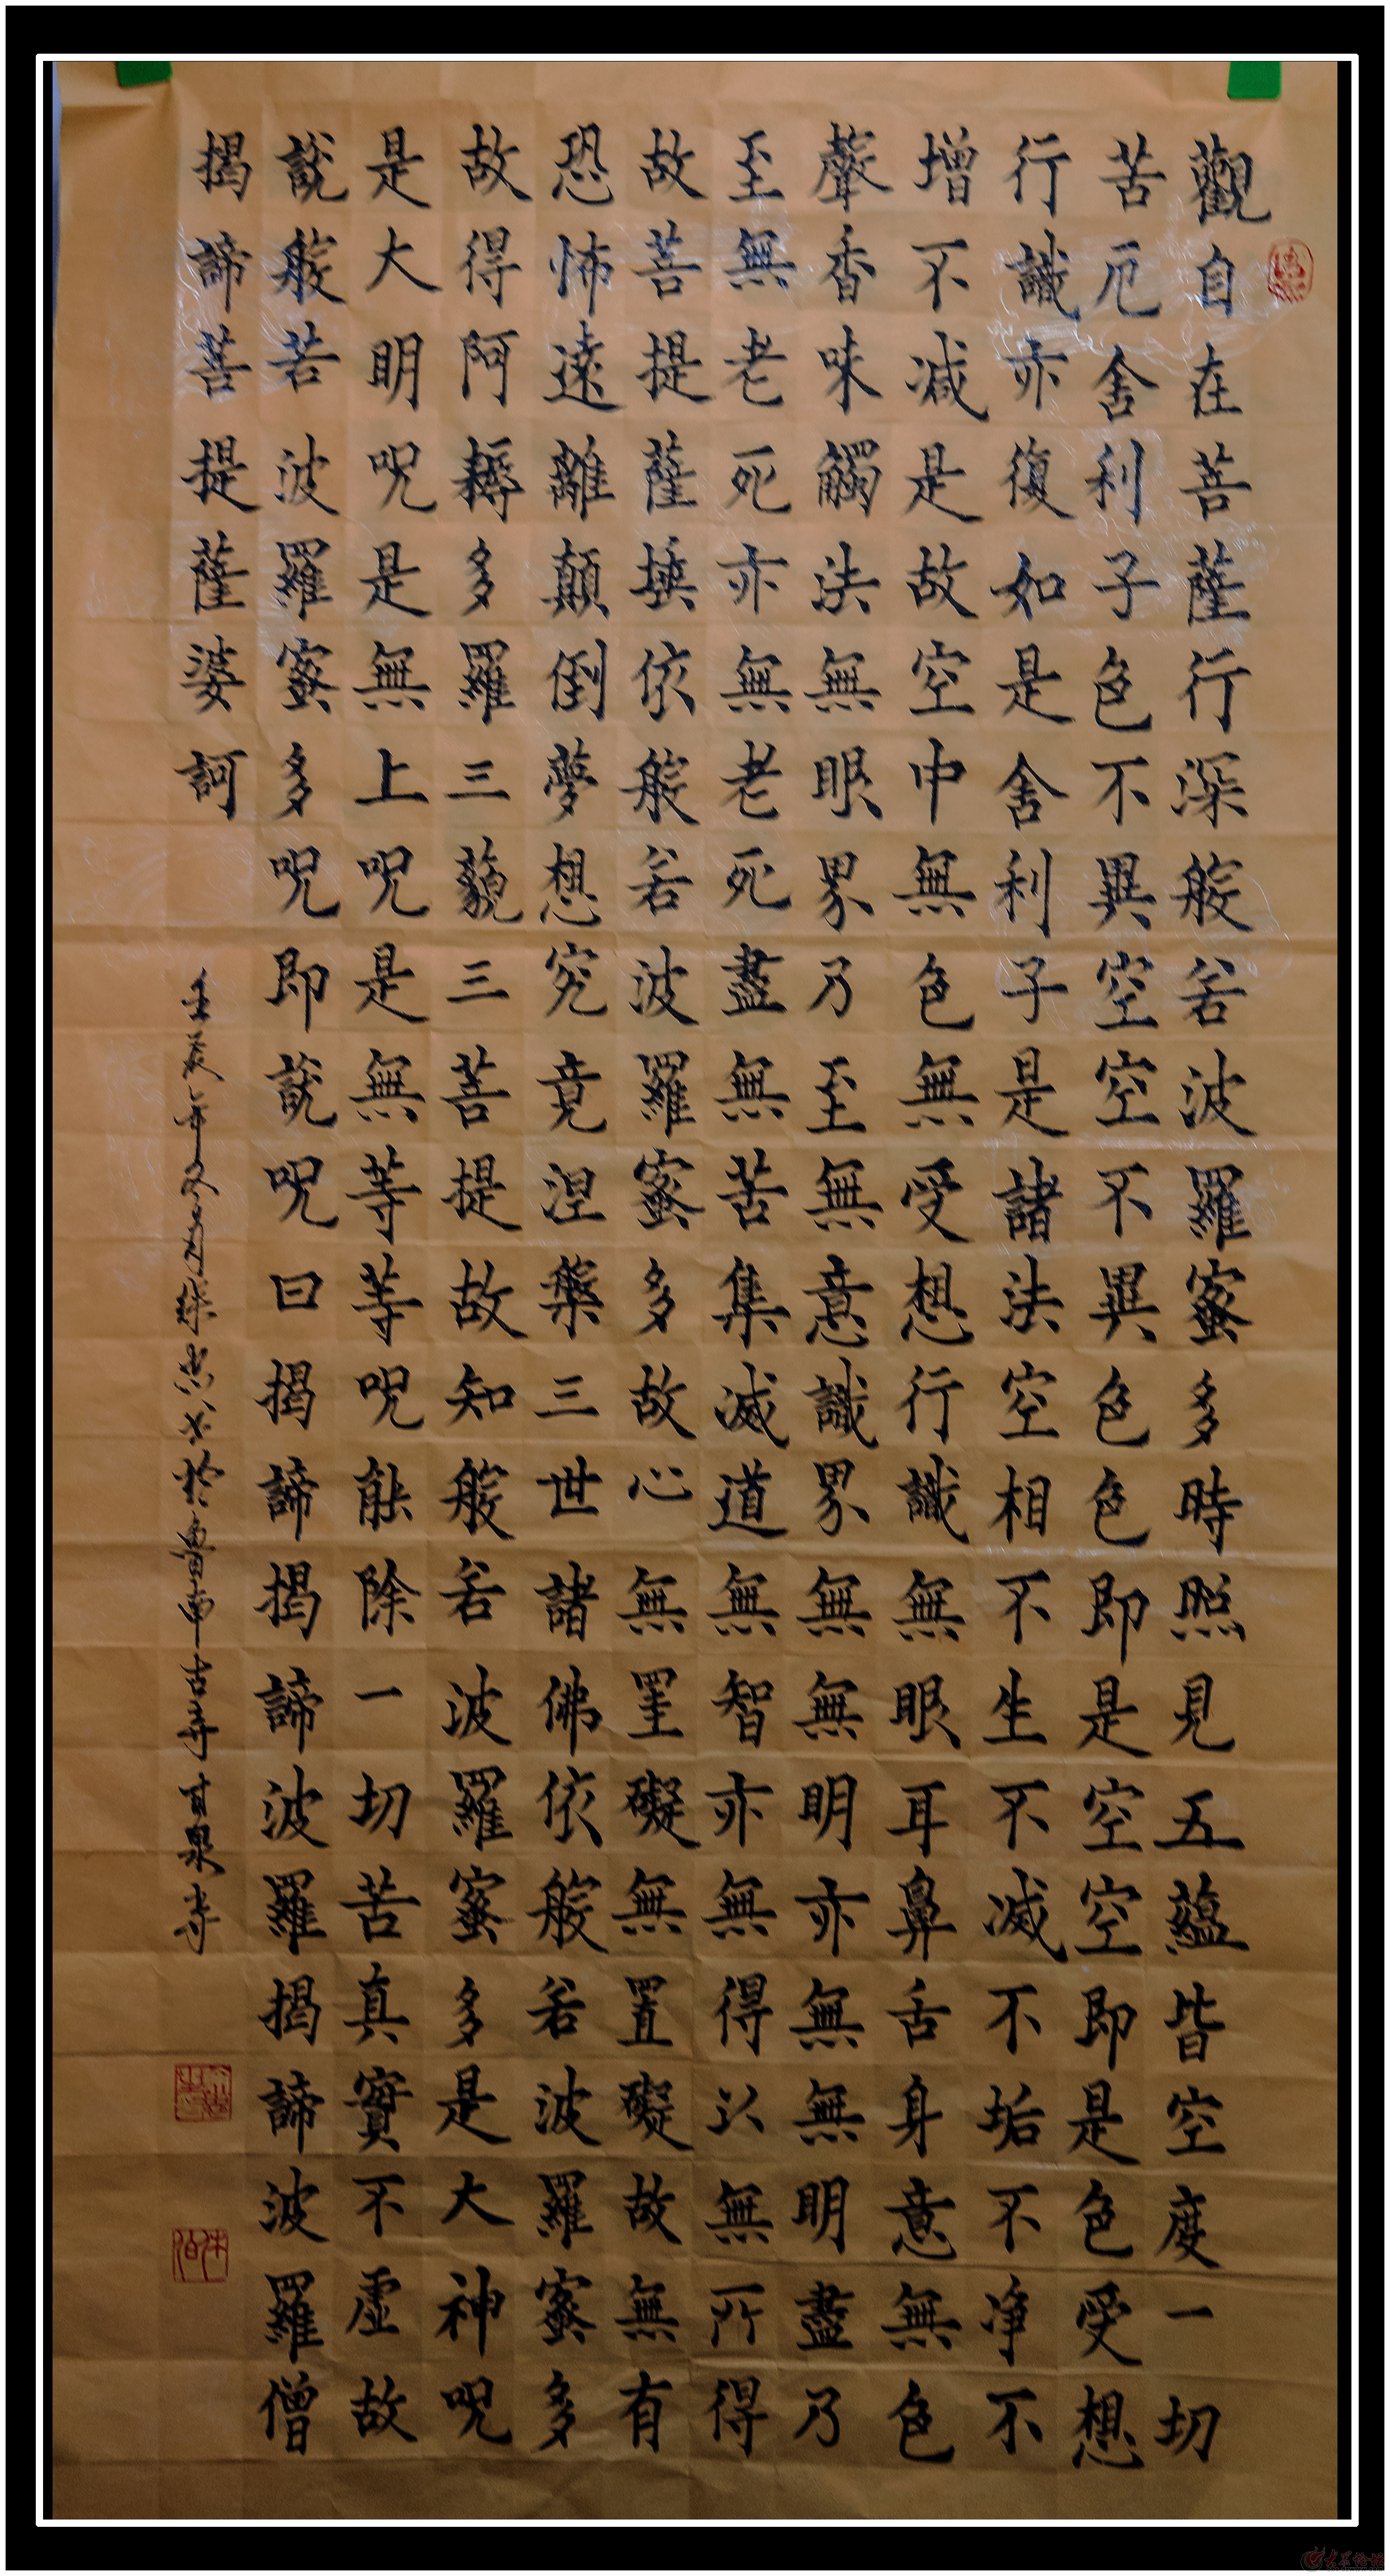 觀自在菩薩行深般若波羅蜜多時照見五蘊皆空度一切
苦厄舍利子色不異空空不異色色即是空空即是色受想
行識亦復如是舍利子是諸法空相不生不滅不垢不淨不
增不減是故空中無色無受想行識無眼耳鼻舌身意無色
聲香味觸法無眼界乃至無意識界無無明亦無無明盡乃
至無老死亦無老死盡無苦集滅道無智亦無得以無所得
故菩提薩埵依般若波羅蜜多故心無罣礙無置礙故無有
恐怖遠離顛倒夢想究竟涅槃三世諸佛依般若波羅蜜多
故得阿耨多羅三藐三菩提故知般若波羅蜜多是大神呪
是大明呪是無上呪是無等等呪能除一切苦真實不虛故
說般若波羅蜜多呪即說呪曰揭諦揭諦波羅揭諦波羅僧
揭諦菩提薩婆訶
年冬月於魯南古寺甘泉寺